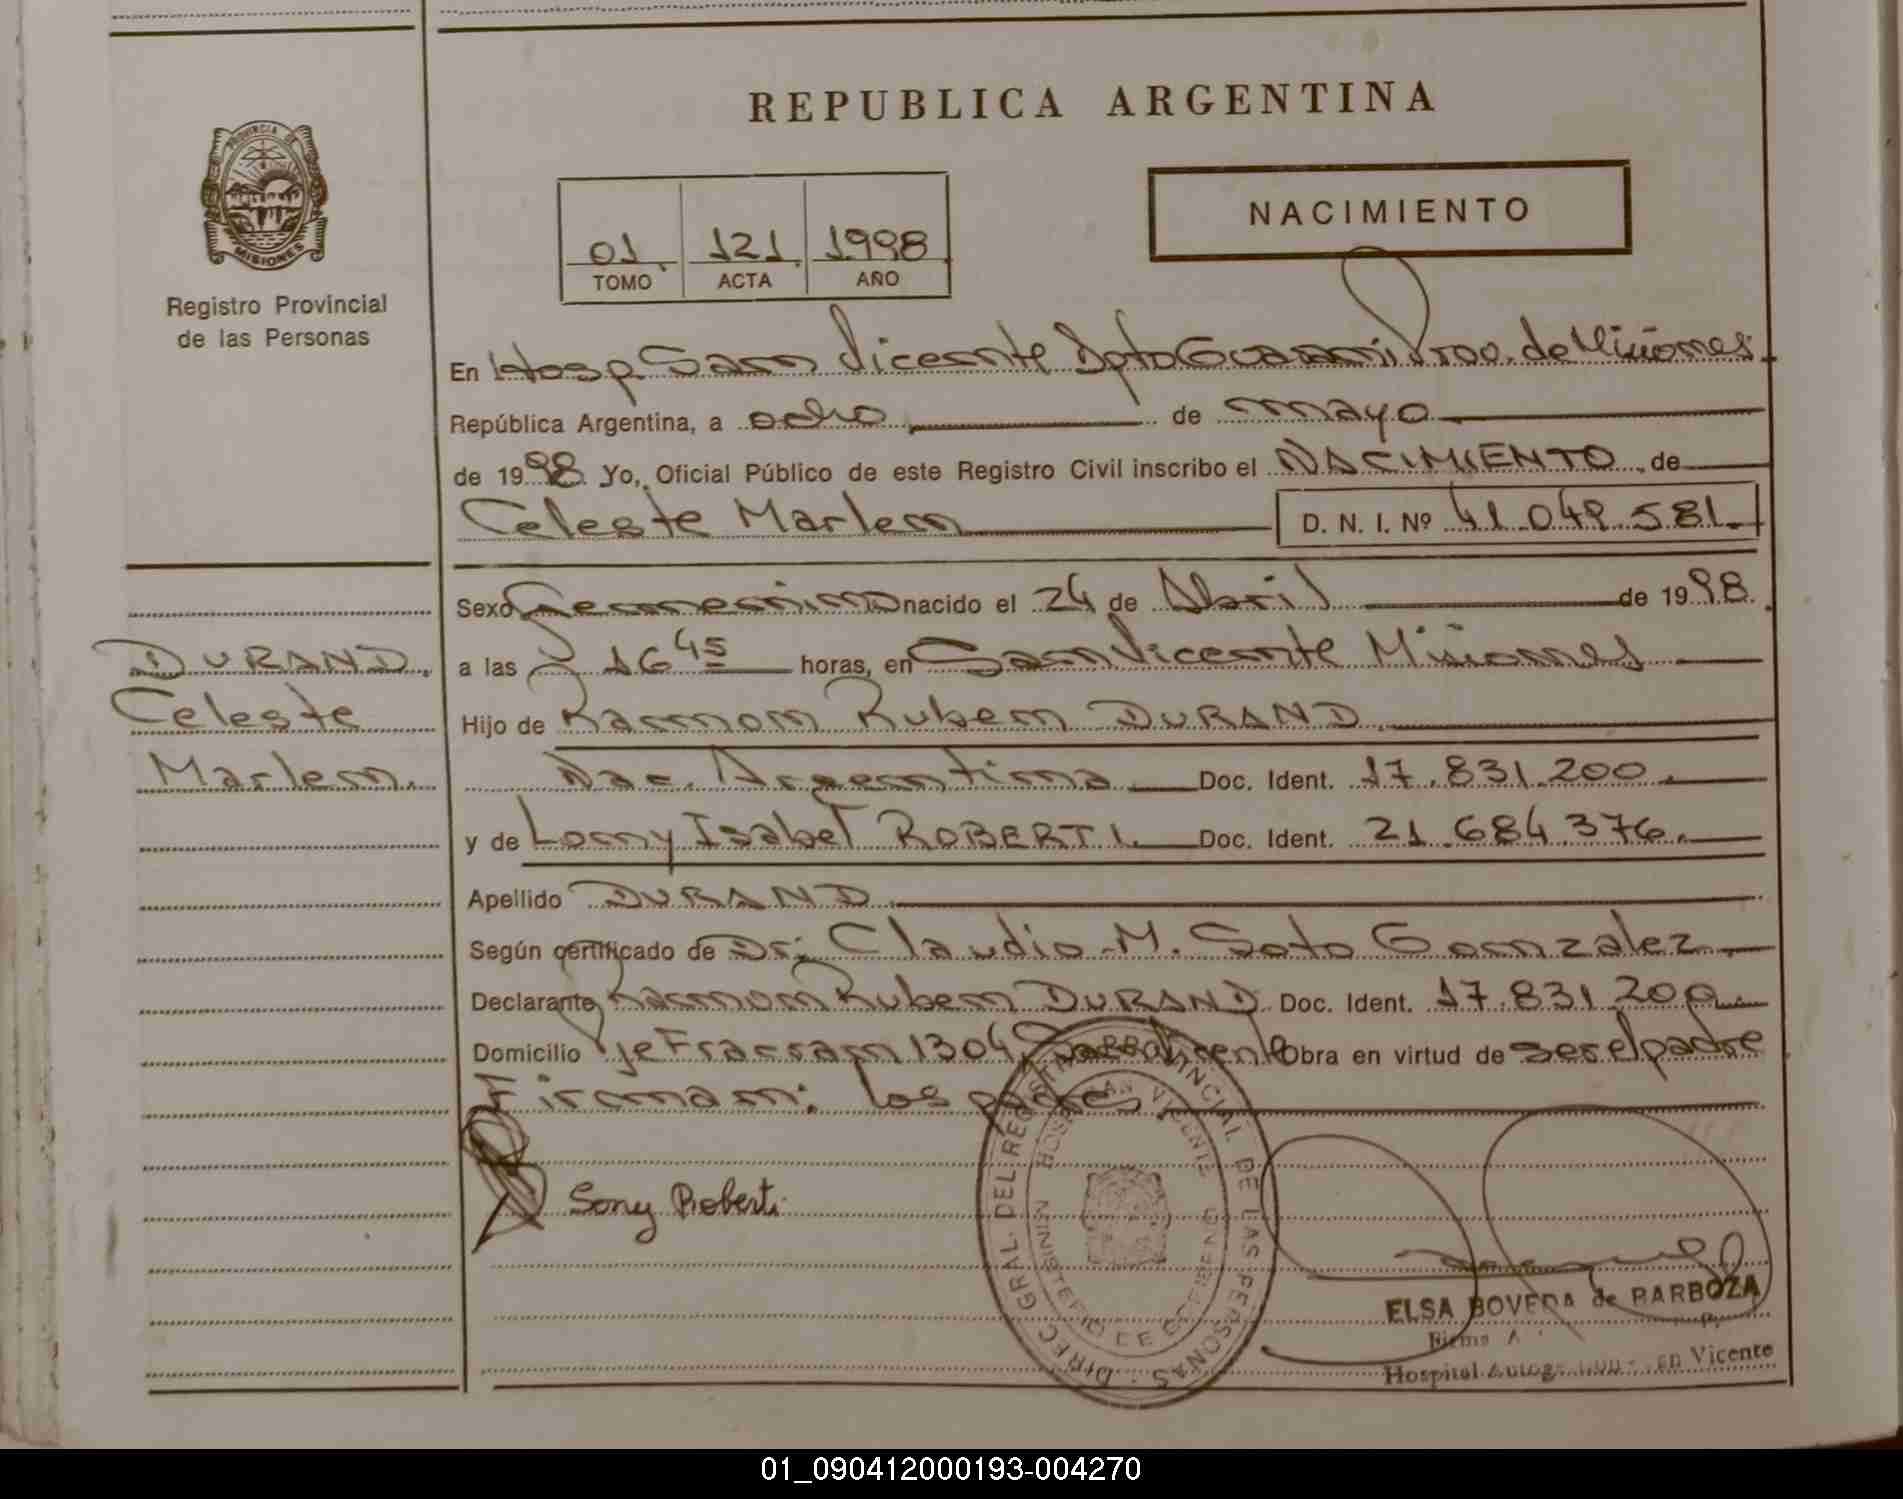 REPUBLICA ARGENTINA
PROVINCIA DE
MISIONES
Registro Provincial
de las Personas
NACIMIENTO
01 121 1998
TOMO ACTA AÑO
En Hosp. San Vicente Dpto Guarani Prov. de Misiones
República Argentina, a ocho de mayo
de 1998 Yo, Oficial Público de este Registro Civil inscribo el NACIMIENTO de
Celeste Marlem D. N. I. Nº 41.049.581.
Sexo Femenino nacido el 24 de Abril de 1998.
DURAND. a las 16 45 horas, en San Vicente Misiones
Celeste Hijo de Ramon Ruben DURAND
Marlem. Nac. Argentina Doc. Ident. 17.831.200.
y de Lony Isabel ROBERTI. Doc. Ident. 21.684.376.
Apellido DURAND
Según certificado de Dr. Claudio M. Soto Gonzalez
Declarante Ramon Ruben DURAND Doc. Ident. 17.831.200
Domicilio 1304 Vicente Obra en virtud de ser el padre
Firman: los padres
Sony Roberti
DIREC. GRAL. DEL REGISTRO PROVINCIAL DE LAS PERSONAS
HOSP. SAN VICENTE
MINISTERIO DE GOBIERNO
ELSA BOVEDA de BARBOZA
Firma A
Hospital Vicente
01_090412000193-004270